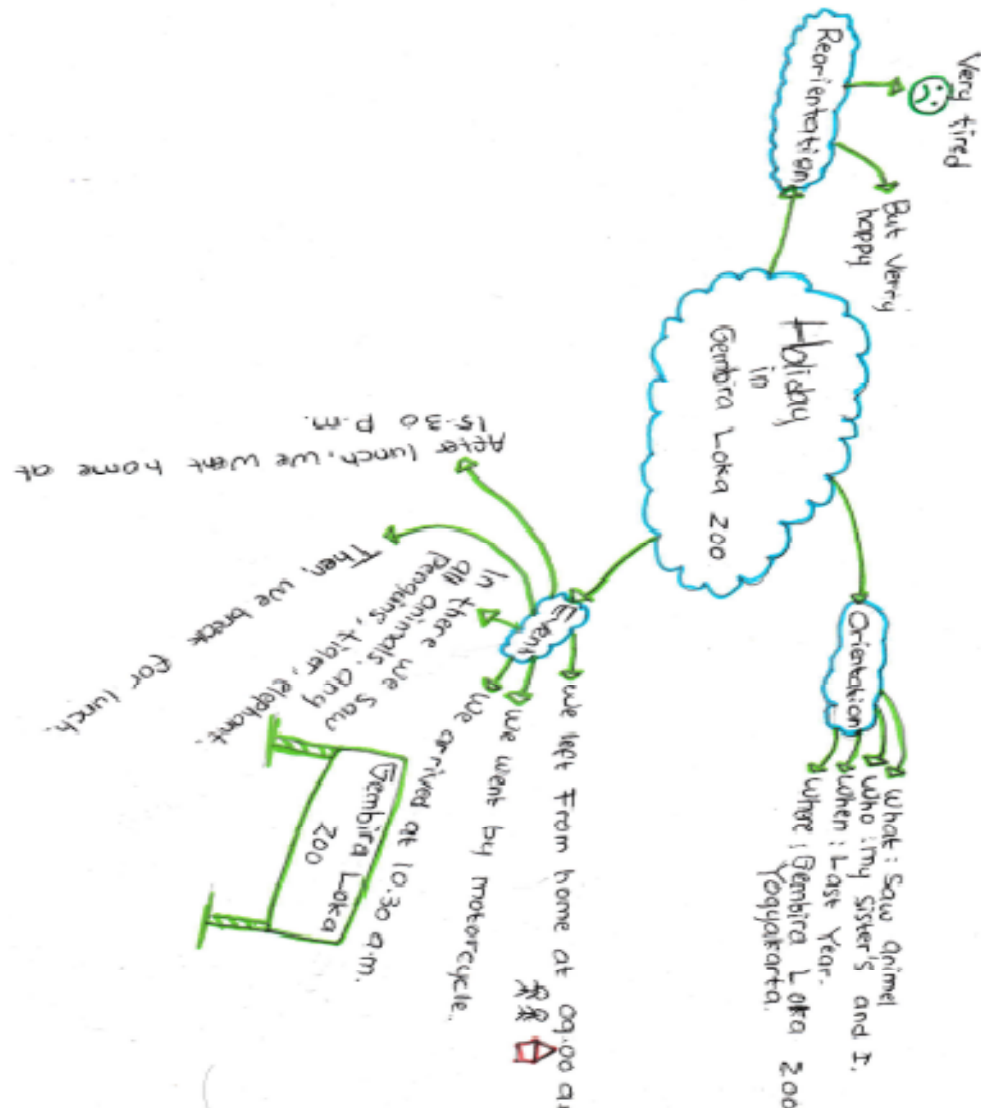 Holiday
in
Gembira Loka Zoo
Orientation
What : Saw animel
Who : my sister's and I.
When : Last Year.
Where : Gembira Loka Zoo
Yogyakarta.
Event
We left From home at 09.00 a
We went by motorcycle.
We arrived at 10.30 a.m.
Gembira Loka
Zoo
In there we saw
all animals. any
penguins, tiger, elephant.
Then, we break for lunch.
After lunch, we went home at
15.30 p.m.
Reorientation
Very tired
But Verry
happy